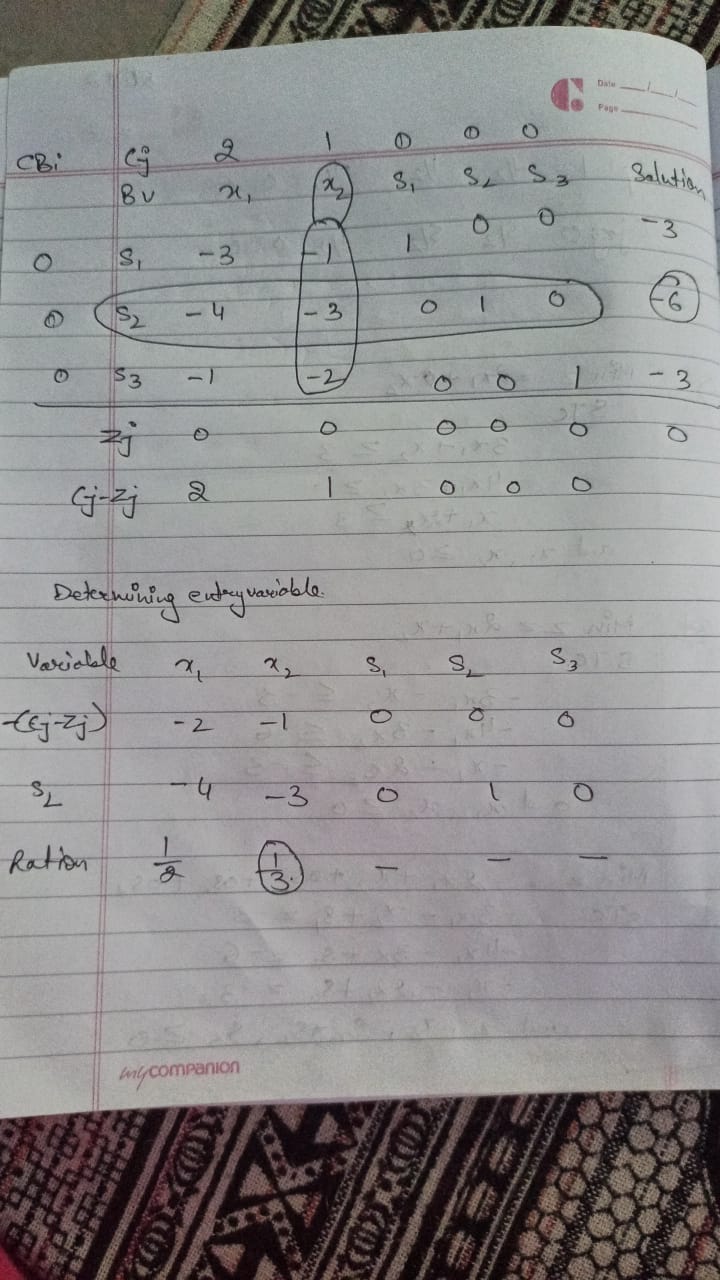 Date
Page
CBi Cj 2 1 0 0 0
BV x₁ x₂ S₁ S₂ S₃ Solution
0 S₁ -3 -1 1 0 0 -3
0 S₂ -4 -3 0 1 0 -6
0 S₃ -1 -2 0 0 1 -3
Zj 0 0 0 0 0 0
Cj-Zj 2 1 0 0 0
Determining entry variable.
Variable x₁ x₂ S₁ S₂ S₃
-(Cj-Zj) -2 -1 0 0 0
S₂ -4 -3 0 1 0
Ration 1/2 1/3 - - -
my companion